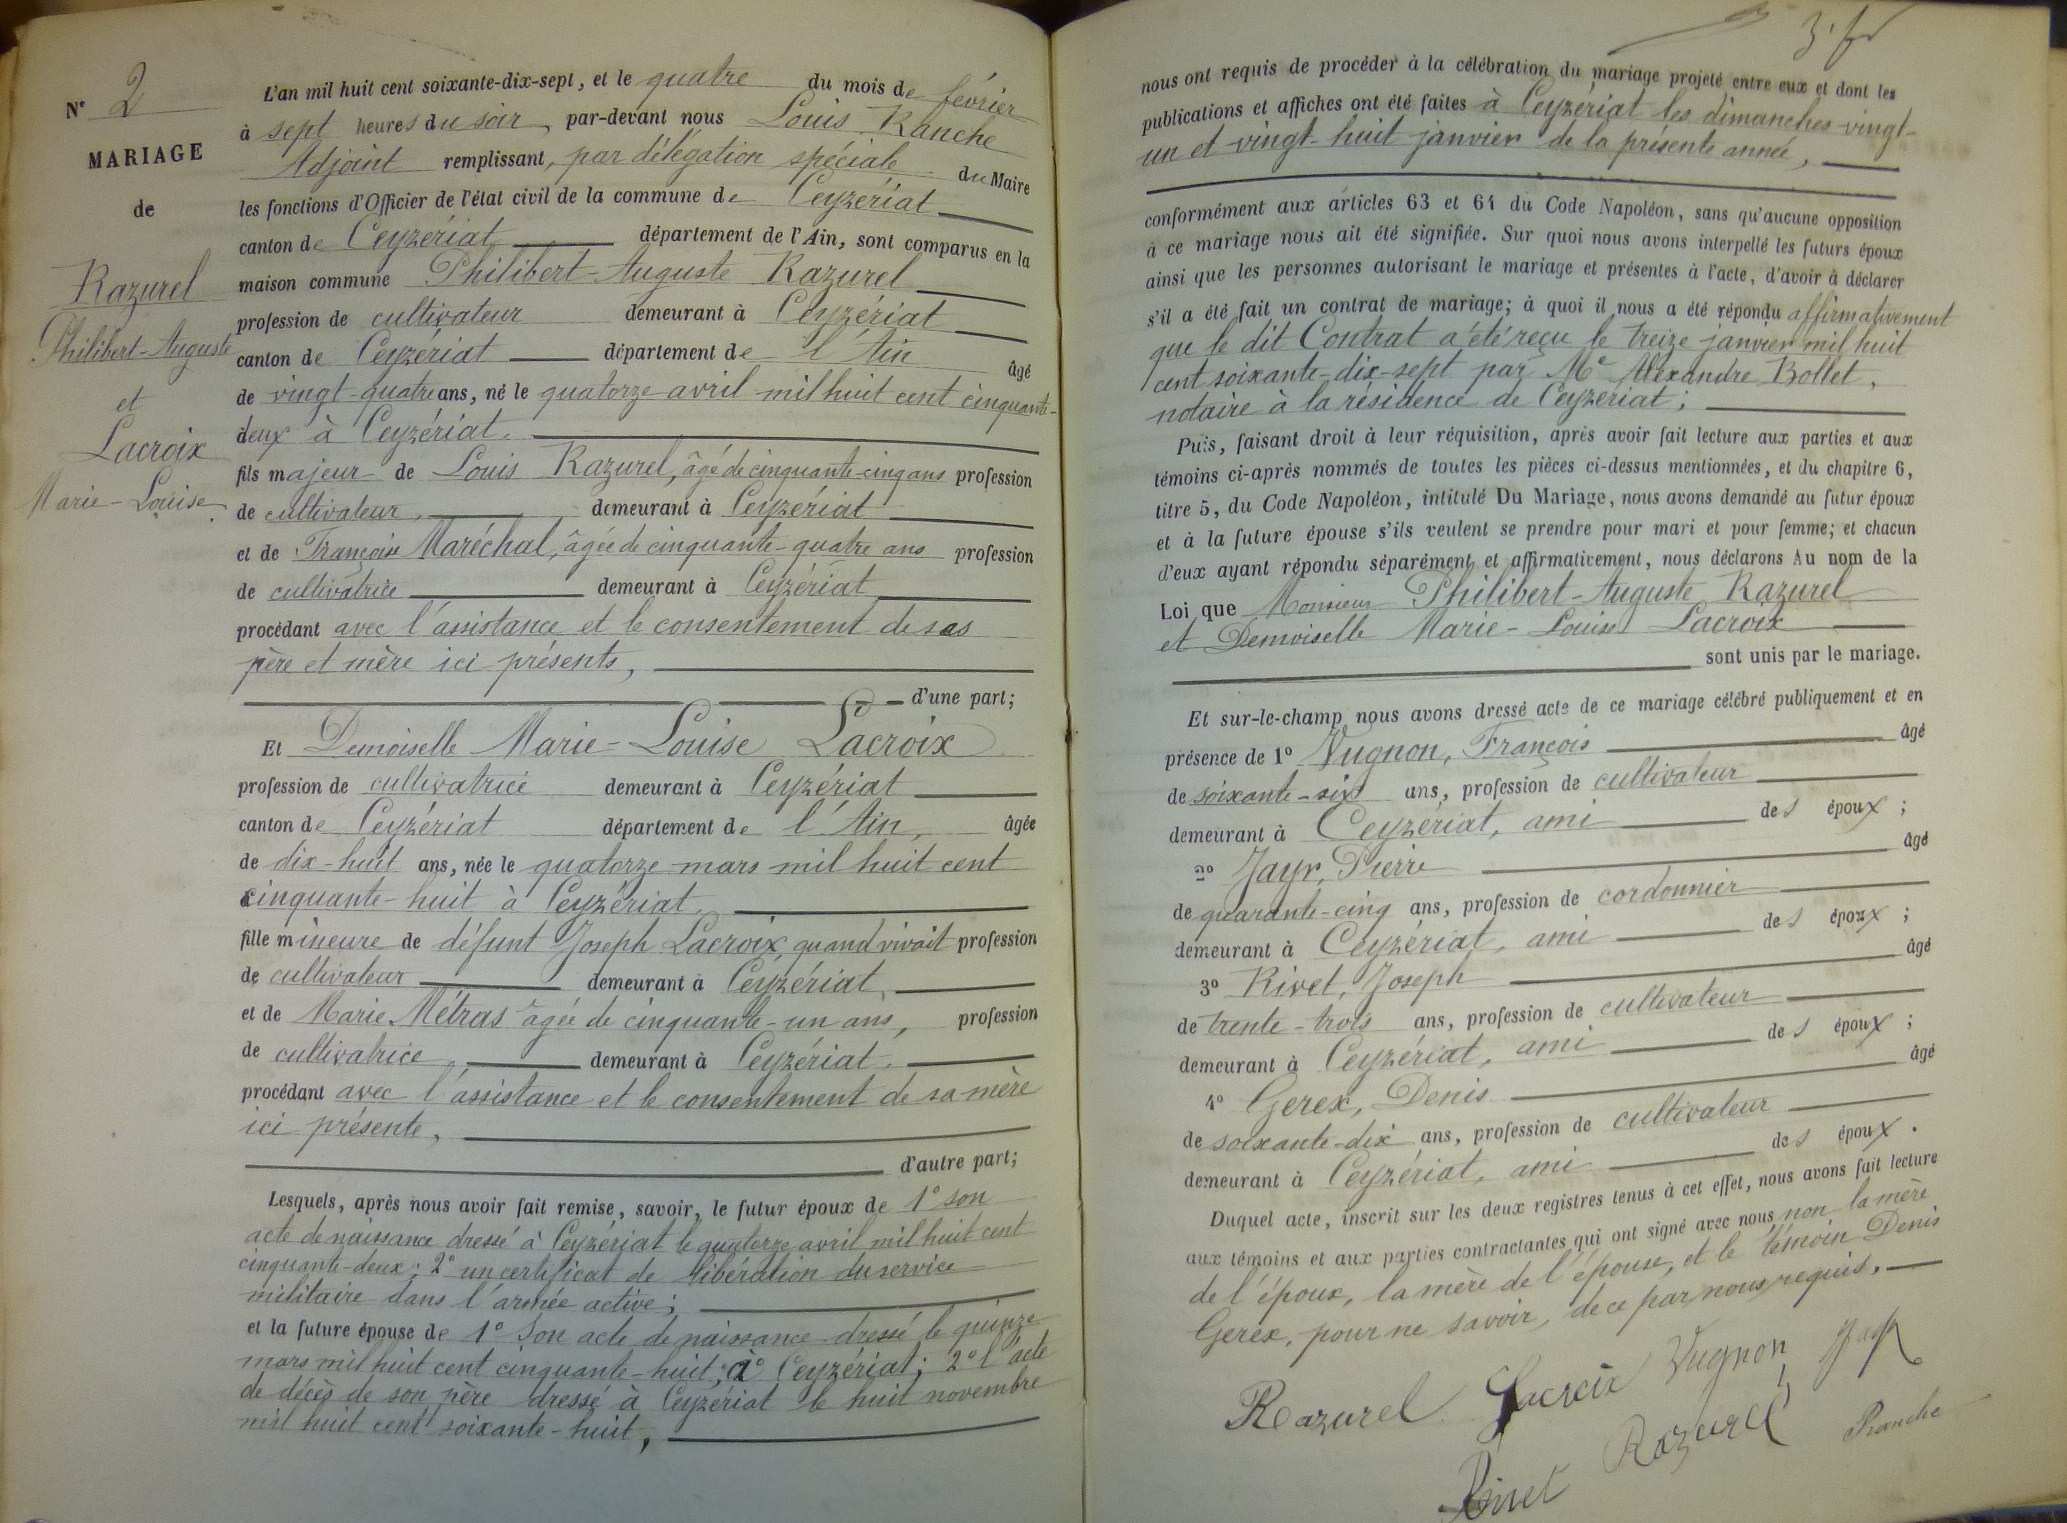 N° 2
MARIAGE
de
Razurel
Philibert-Auguste
et
Lacroix
Marie-Louise
L'an mil huit cent soixante-dix-sept, et le quatre du mois de février
à sept heures du soir, par-devant nous Louis Ranche
Adjoint remplissant, par délégation spéciale du Maire
les fonctions d'Officier de l'état civil de la commune de Ceyzériat
canton de Ceyzériat, département de l'Ain, sont comparus en la
maison commune Philibert-Auguste Razurel
profession de cultivateur demeurant à Ceyzériat
canton de Ceyzériat département de l'Ain âgé
de vingt-quatre ans, né le quatorze avril mil huit cent cinquante-
deux à Ceyzériat.
fils majeur de Louis Razurel, âgé de cinquante-cinq ans profession
de cultivateur, demeurant à Ceyzériat
et de Françoise Maréchal, âgée de cinquante-quatre ans profession
de cultivatrice demeurant à Ceyzériat
procédant avec l'assistance et le consentement de ses
père et mère ici présents,
d'une part;
Et Demoiselle Marie-Louise Lacroix
profession de cultivatrice demeurant à Ceyzériat
canton de Ceyzériat département de l'Ain, âgée
de dix-huit ans, née le quatorze mars mil huit cent
cinquante-huit à Ceyzériat,
fille mineure de défunt Joseph Lacroix, quand vivait profession
de cultivateur demeurant à Ceyzériat,
et de Marie Métras âgée de cinquante-un ans, profession
de cultivatrice, demeurant à Ceyzériat.
procédant avec l'assistance et le consentement de sa mère
ici présente,
d'autre part;
Lesquels, après nous avoir fait remise, savoir, le futur époux de 1° son
acte de naissance dressé à Ceyzériat le quatorze avril mil huit cent
cinquante-deux; 2° un certificat de libération du service
militaire dans l'armée active;
et la future épouse de 1° Son acte de naissance dressé le quinze
mars mil huit cent cinquante-huit, à Ceyzériat; 2° l'acte
de décès de son père dressé à Ceyzériat le huit novembre
mil huit cent soixante-huit,
nous ont requis de procéder à la célébration du mariage projeté entre eux et dont les
publications et affiches ont été faites à Ceyzériat les dimanches vingt-
un et vingt-huit janvier de la présente année,
conformément aux articles 63 et 64 du Code Napoléon, sans qu'aucune opposition
à ce mariage nous ait été signifiée. Sur quoi nous avons interpellé les futurs époux
ainsi que les personnes autorisant le mariage et présentes à l'acte, d'avoir à déclarer
s'il a été fait un contrat de mariage; à quoi il nous a été répondu affirmativement
que le dit Contrat a été reçu le treize janvier mil huit
cent soixante-dix-sept par Me Alexandre Bollet,
notaire à la résidence de Ceyzériat;
Puis, faisant droit à leur réquisition, après avoir fait lecture aux parties et aux
témoins ci-après nommés de toutes les pièces ci-dessus mentionnées, et du chapitre 6,
titre 5, du Code Napoléon, intitulé Du Mariage, nous avons demandé au futur époux
et à la future épouse s'ils veulent se prendre pour mari et pour femme; et chacun
d'eux ayant répondu séparément et affirmativement, nous déclarons Au nom de la
Loi que Monsieur Philibert-Auguste Razurel
et Demoiselle Marie-Louise Lacroix
sont unis par le mariage.
Et sur-le-champ nous avons dressé acte de ce mariage célébré publiquement et en
présence de 1° Vugnon, François âgé
de soixante-six ans, profession de cultivateur
demeurant à Ceyzériat, ami des époux;
2° Jayr, Pierre âgé
de quarante-cinq ans, profession de cordonnier
demeurant à Ceyzériat, ami des époux;
3° Rivet, Joseph âgé
de trente-trois ans, profession de cultivateur
demeurant à Ceyzériat, ami des époux;
4° Gerex, Denis âgé
de soixante-dix ans, profession de cultivateur
demeurant à Ceyzériat, ami des époux.
Duquel acte, inscrit sur les deux registres tenus à cet effet, nous avons fait lecture
aux témoins et aux parties contractantes qui ont signé avec nous non la mère
de l'époux, la mère de l'épouse, et le témoin Denis
Gerex, pour ne savoir, de ce par nous requis.
Razurel Lacroix Vugnon Jayr
Rivet Razurel Ranche